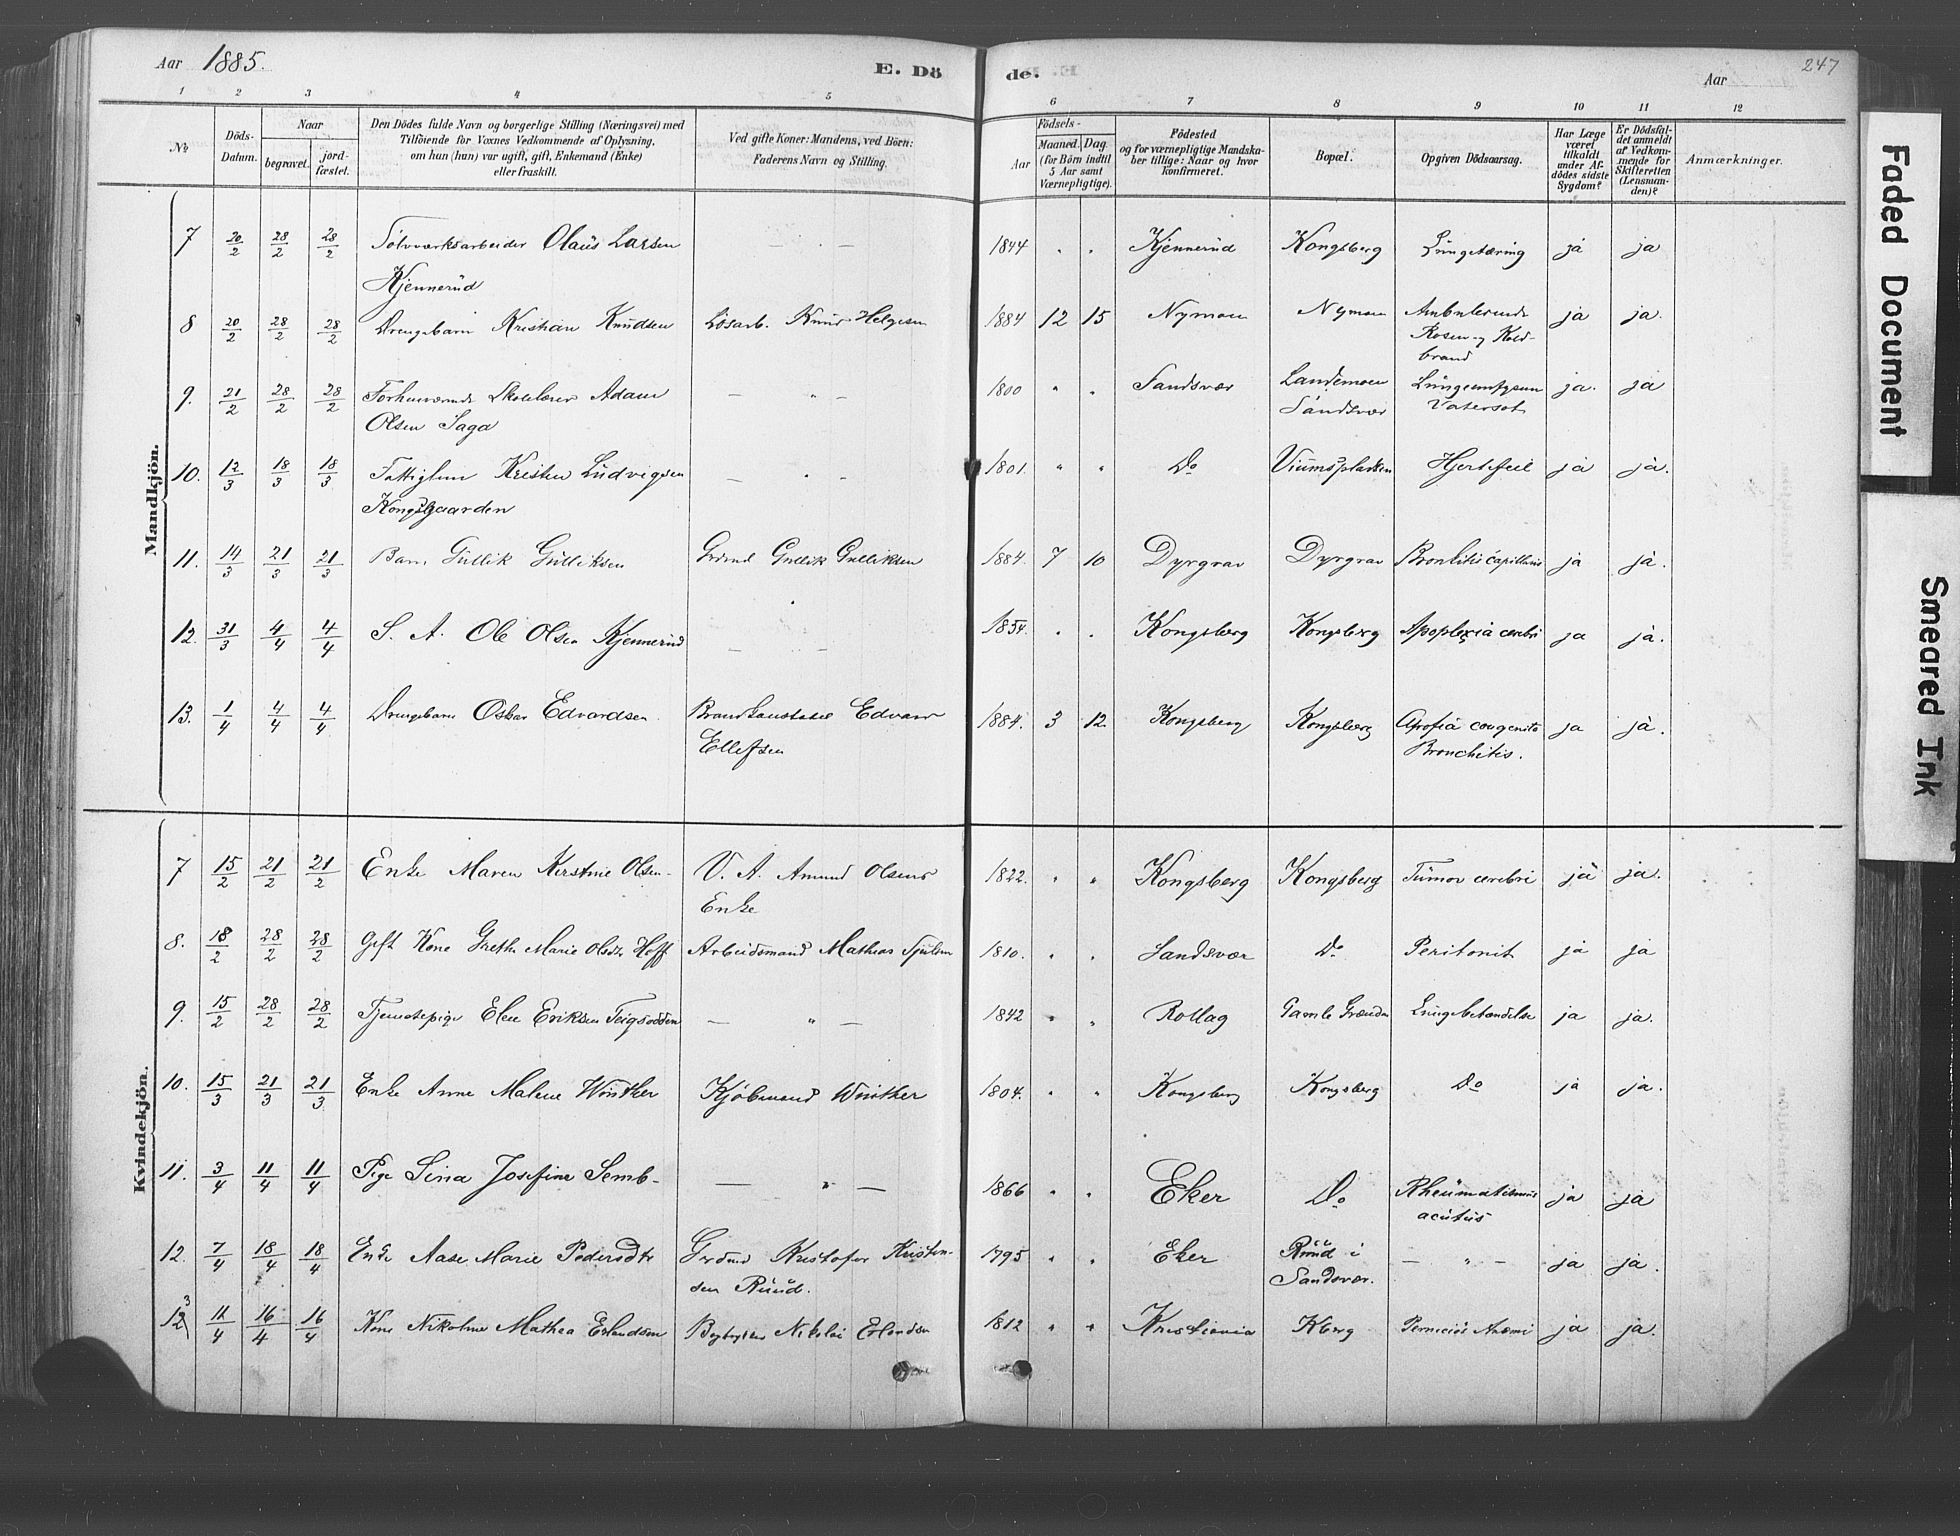 Aar 1885.
E. Dö de.
Aar
247
1 2 3 4 5 6 7 8 9 10 11 12
No
Döds-Datum.
Naar
begravet.
jord-fæstet.
Den Dödes fulde Navn og borgerlige Stilling (Næringsvei) med
Tilföiende for Voxnes Vedkommende af Oplysning,
om hun (han) var ugift, gift, Enkemand (Enke)
eller fraskilt.
Ved gifte Koner: Mandens, ved Börn:
Faderens Navn og Stilling.
Födsels-
Aar
Maaned. Dag.
(for Börn indtil
5 Aar samt
Værnepligtige).
Födested
og for værnepligtige Mandska-
ber tillige: Naar og hvor
konfirmeret.
Bopæl.
Opgiven Dödsaarsag.
Har Læge
været
tilkaldt
under Af-
dödes sidste
Sygdom?
Er Dödsfal-
det anmeldt
af Vedkom-
mende for
Skifteretten
(Lensman-
den)?
Anmærkninger.
Mandkjön.
7 20/2 28/2 28/2 Sölvværksarbeider Olaus Larsen — " — 1844 " " Kjennerud Kongsberg Lungetæring ja ja
Kjennerud
8 20/2 28/2 28/2 Drengebarn Kristian Knudsen Lösarb. Knud Helgesen 1884 12 15 Nymoen Nymoen Ambulerende ja ja.
Rosen og Kold-
brand
9. 21/2 28/2 28/2 Forhenværende Skolelærer Adam — " — 1800 " " Sandsvær Landemoen Lungeemfysem ja. ja
Olsen Saga Sandsvær Vatersot
10. 12/3 18/3 18/3 Fattiglem Kristen Ludvigsen — " — 1801. " " Do Viumspladsen Hjertefeil ja ja.
Kongsgaarden
11. 14/3 21/3 21/3 Barn Gullik Gulliksen Grbmd Gullik Gulliksen 1884. 7 10 Dyrgrav Dyrgrav Bronkitis capillaris ja ja.
12. 31/3 4/4 4/4 S. A. Ole Olsen Kjennerud — " — 1854. " " Kongsberg Kongsberg Apoplexia cerebri ja ja.
13. 1/4 4/4 4/4 Drengebarn Oskar Edvardsen. Brandkonstabel Edvard 1884. 3 12. Kongsberg Kongsberg Atrofia congenita ja ja.
Ellefsen Bronchitis.
Kvindekjön.
7 15/2 21/2 21/2 Enke Maren Kirstine Olsen- V. A. Amund Olsens 1822. " " Kongsberg Kongsberg Tumor cerebri ja ja.
Enke
8. 18/2 28/2 28/2 Gift Kone Grethe Marie Olsdtr Hoff Arbeidsmand Mathias 1810. " " Sandsvær Do Peritonit ja ja
9. 15/2 28/2 28/2 Tjenestepige Elen Eriksen Teigsodden — " — 1842 " " Rollag Gamle Grænden Lungebetændelse ja ja.
10. 15/3 21/3 21/3 Enke Anne Malene Winther Kjöbmand Winther 1804. " " Kongsberg Kongsberg Do ja ja.
11. 3/4 11/4 11/4 Pige Lina Josefine Semb- — " — 1866 " " Eker Do Rheumatismus ja ja
acutus
12. 7/4 18/4 18/4 Enke Aase Marie Pedersdtr Grbmd Kristofer Kristen- 1795 " " Eker Ruud i — " — ja ja.
sen Ruud. Sandsvær.
13 11/4 16/4 16/4 Kone Nikoline Mathea Erlandsen Nikolai Erlandsen 1812 " " Kristiania Kberg Perniciös Anæmi ja ja.
Faded Document
Smeared Ink